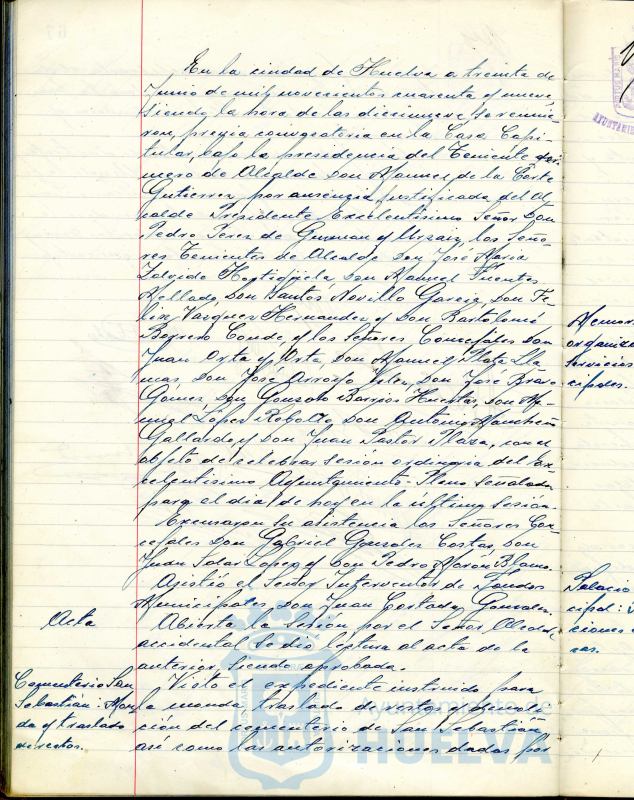 En la ciudad de Huelva a treinta de
Junio de mil novecientos cuarenta y nueve
siendo la hora de las diecinueve se reunie-
ron, previa convocatoria en la Casa Capi-
tular, bajo la presidencia del Teniente pri-
mero de Alcalde Don Manuel de la Corte
Gutierrez, por ausencia justificada del Al-
calde Presidente Excelentísimo Señor Don
Pedro Perez de Guzman y Urzaiz, los Seño-
res Tenientes de Alcalde Don José Maria
Zalvide Don Manuel Fuentes
Mellado, Don Santos Novillo Garcia, Don Fe-
lix Vazquez Hernandez y Don Bartolomé
Borrero Conde, y los Señores Concejales Don
Juan Orta y Orta, Don Manuel Mata Lla-
nas, Don José Arroyo Don José Bravo
Gomez, Don Gonzalo Barrios Huertas, Don Ma-
nuel López Rebollo, Don Antonio Mancheño
Gallardo, y Don Juan Pastor Plaza, con el
objeto de celebrar sesión ordinaria del Ex-
celentísimo Ayuntamiento-Pleno señalada
para el día de hoy en la última sesión.
Excusaron su asistencia los Señores Con-
cejales Don Gabriel Gonzalez Costas, Don
Juan Solar Lopez y Don Pedro Morón Blanco.
Asistió el Señor Interventor de Fondos
Municipales, Don Juan Cortada Gonzalez.
Acta
Abierta la sesión por el Señor Alcalde
accidental se dio lectura al acta de la
anterior, siendo aprobada.
Cementerio San
Sebastián: Mon-
da y traslado
de restos.
Visto el expediente instruido para
la monda y traslado de restos y demoli-
ción del cementerio de San Sebastián
así como las autorizaciones dadas por
Memor
organiza
servicios
cipales.
Palacio
cipal:
ciones
ras.
Ayuntamiento de
HUELVA